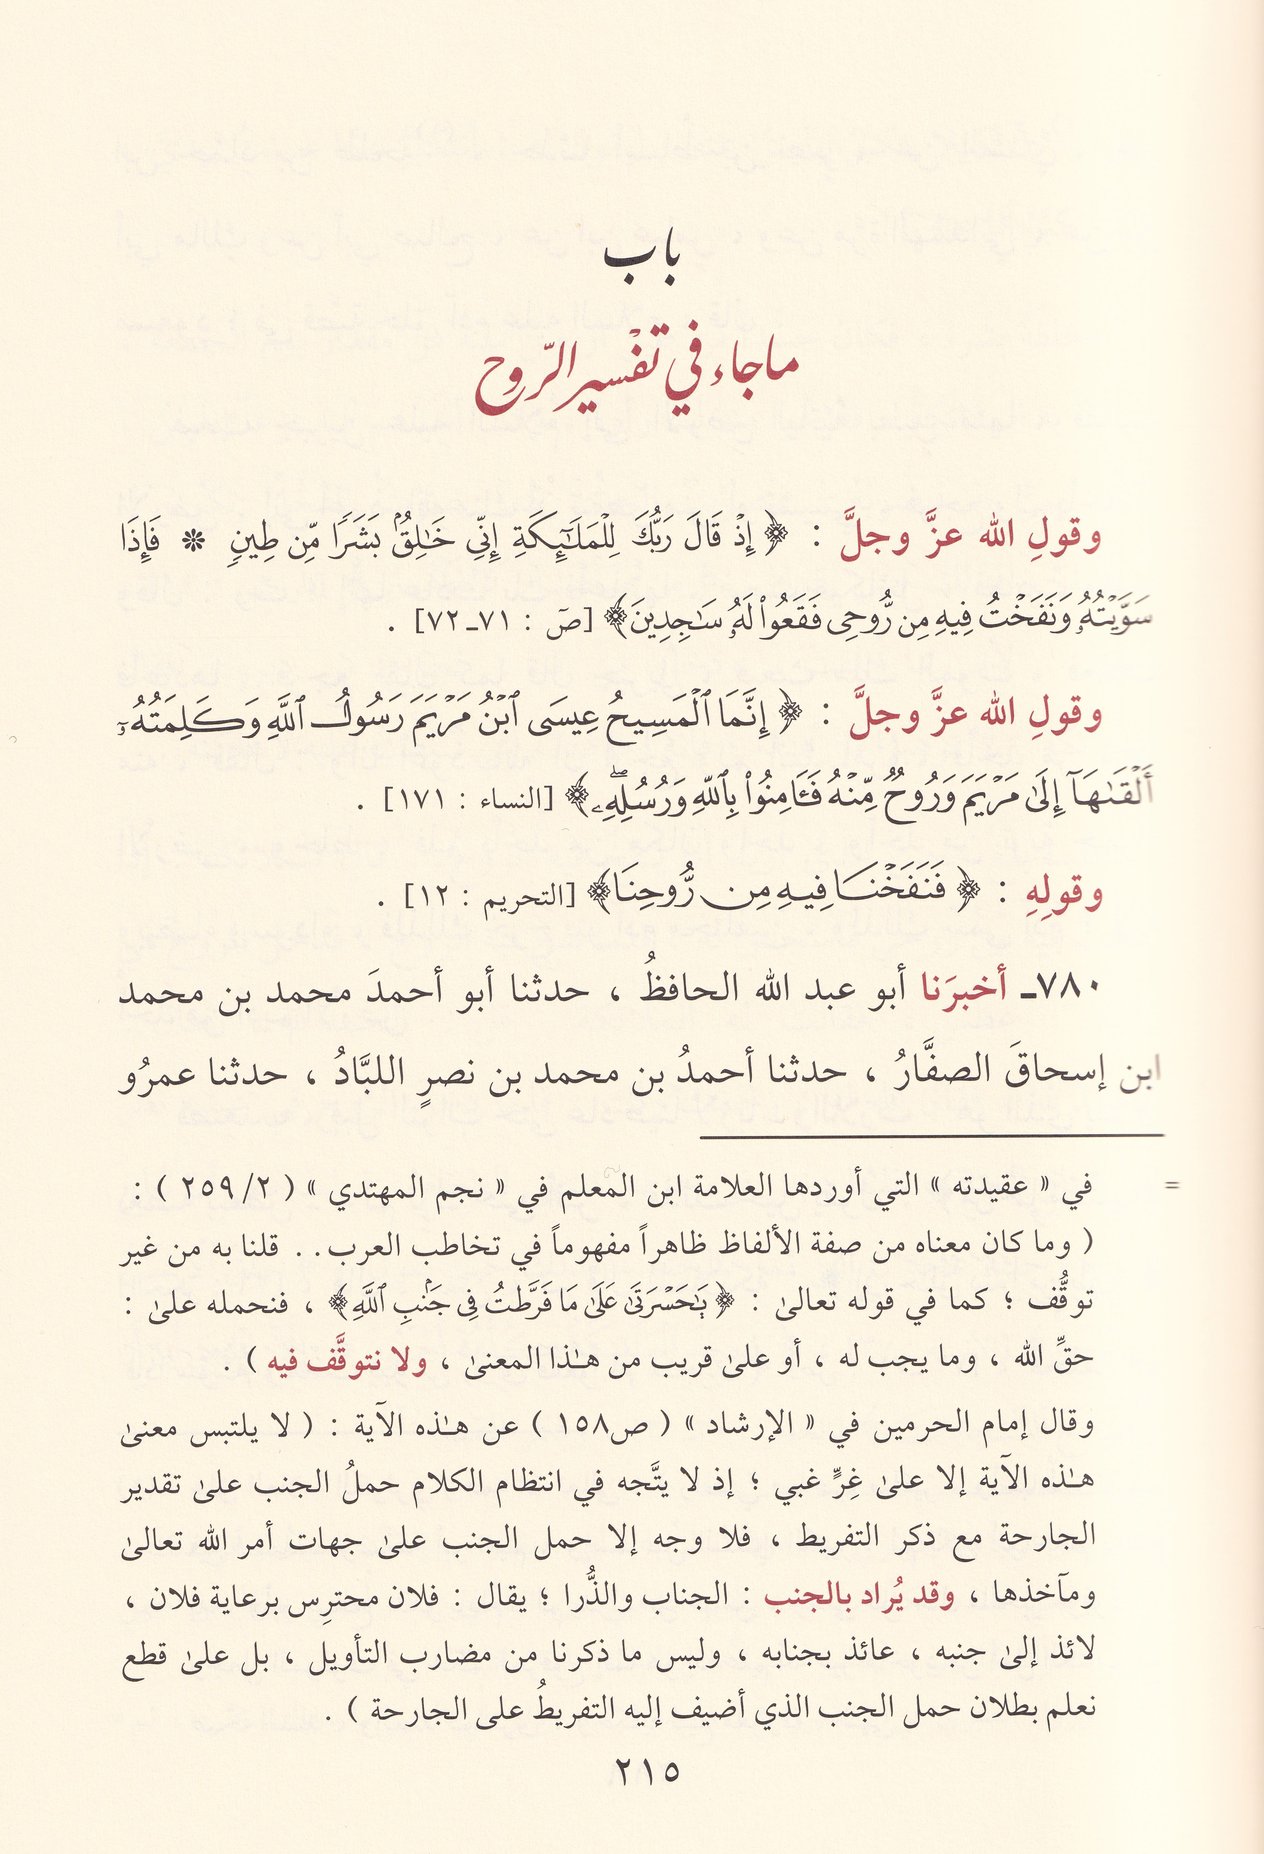 باب
ما جاء في تفسير الرّوح
وقولِ الله عزَّ وجلَّ : ﴿ إِذْ قَالَ رَبُّكَ لِلْمَلَٰٓئِكَةِ إِنِّى خَٰلِقُۢ بَشَرًا مِّن طِينٍ * فَإِذَا
سَوَّيْتُهُۥ وَنَفَخْتُ فِيهِ مِن رُّوحِى فَقَعُوا۟ لَهُۥ سَٰجِدِينَ﴾ [صٓ : ٧١ـ٧٢] .
وقولِ الله عزَّ وجلَّ : ﴿ إِنَّمَا ٱلْمَسِيحُ عِيسَى ٱبْنُ مَرْيَمَ رَسُولُ ٱللَّهِ وَكَلِمَتُهُۥٓ
أَلْقَىٰهَآ إِلَىٰ مَرْيَمَ وَرُوحٌ مِّنْهُ فَـَٔامِنُوا۟ بِٱللَّهِ وَرُسُلِهِۦۖ﴾ [النساء : ١٧١] .
وقولِهِ : ﴿ فَنَفَخْنَا فِيهِ مِن رُّوحِنَا﴾ [التحريم : ١٢] .
٧٨٠ـ أخبرَنا أبو عبد الله الحافظُ ، حدثنا أبو أحمدَ محمد بن محمد
ابن إسحاقَ الصفَّارُ ، حدثنا أحمدُ بن محمد بن نصرٍ اللبَّادُ ، حدثنا عمرُو
= في « عقيدته » التي أوردها العلامة ابن المعلم في « نجم المهتدي » ( ٢/ ٢٥٩ ) :
( وما كان معناه من صفة الألفاظ ظاهراً مفهوماً في تخاطب العرب.. قلنا به من غير
توقُّف ؛ كما في قوله تعالىٰ : ﴿ يَٰحَسْرَتَىٰ عَلَىٰ مَا فَرَّطتُ فِى جَنۢبِ ٱللَّهِ﴾ ، فنحمله علىٰ :
حقِّ الله ، وما يجب له ، أو علىٰ قريب من هـٰذا المعنىٰ ، ولا نتوقَّف فيه ) .
وقال إمام الحرمين في « الإرشاد » ( ص١٥٨ ) عن هـٰذه الآية : ( لا يلتبس معنىٰ
هـٰذه الآية إلا علىٰ غِرٍّ غبي ؛ إذ لا يتَّجه في انتظام الكلام حملُ الجنب علىٰ تقدير
الجارحة مع ذكر التفريط ، فلا وجه إلا حمل الجنب علىٰ جهات أمر الله تعالىٰ
ومآخذها ، وقد يُراد بالجنب : الجناب والذُّرا ؛ يقال : فلان محترِس برعاية فلان ،
لائذ إلىٰ جنبه ، عائذ بجنابه ، وليس ما ذكرنا من مضارب التأويل ، بل علىٰ قطع
نعلم بطلان حمل الجنب الذي أضيف إليه التفريطُ على الجارحة ) .
٢١٥